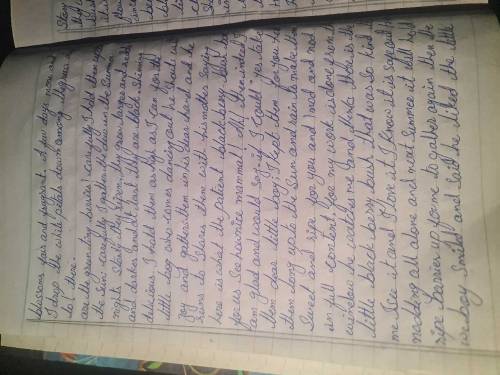 blossoms fair and fragrant. A few days more and
I drop the white petals down among the grass.
do I there
are the green tiny berries! carefully I hold them up to
the sun carefully I gather the dew in the summer
nights slowly they ripen, they grow larger and redder
and darker and at last they are black shining
delicious I hold them as high as I can for the
little boy who comes dancing out he shouts with
joy and gathers them in his dear hand and he
runs to share them with his mother saying
here is what the patient blackberry bush bore
for us See precious mamma! Ah! then indeed I
am glad and would say if I could yes take
them dear little boy I kept them for you held
them long up to the sun and rain to make them
sweet and ripe for you and I nod and nod
in full content, for my work is done from
window he watches me and thinks there is the
little black berry bush that was so kind to
me I see it and I love it. I know it is safe out there
nodding all alone and next summer it will hold
ripe berries up for me to gather again then the
wee boy smiled and said he liked the little